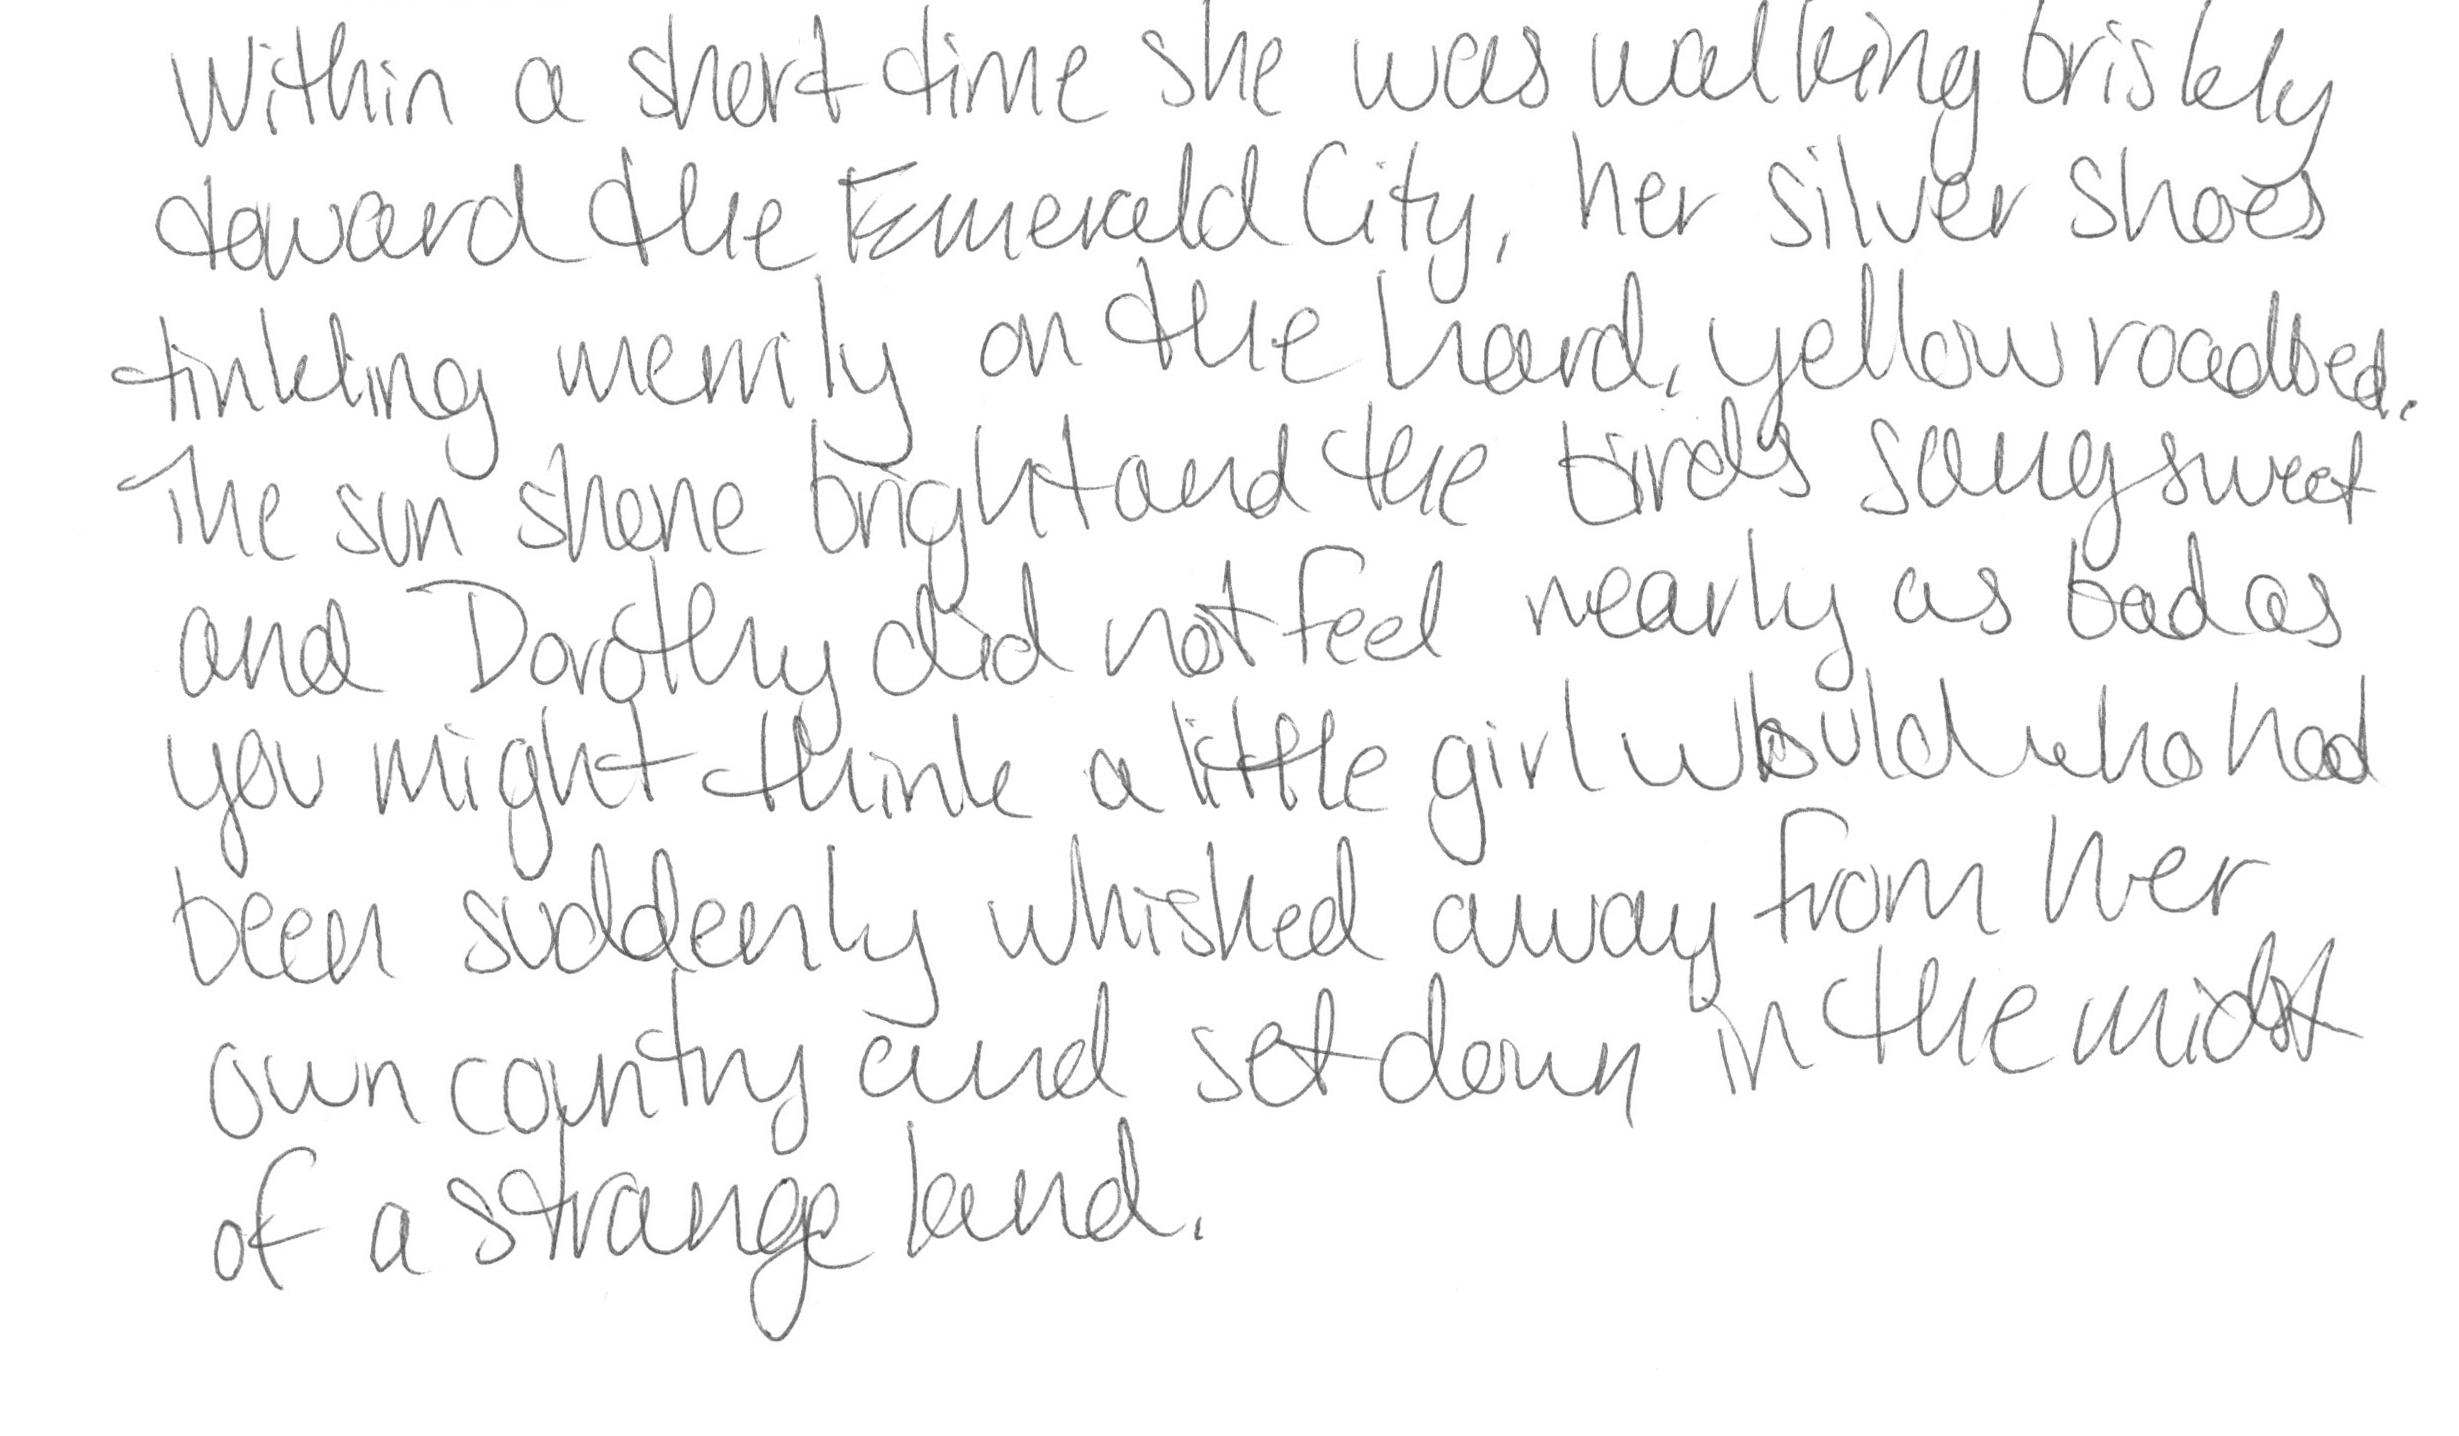 Within a short time she was walking briskly
toward the Emerald City, her silver shoes
tinkling merrily on the hard, yellow roadbed.
The sun shone bright and the birds sang sweet
and Dorothy did not feel nearly as bad as
you might think a little girl would who had
been suddenly whisked away from her
own country and set down in the midst
of a strange land.